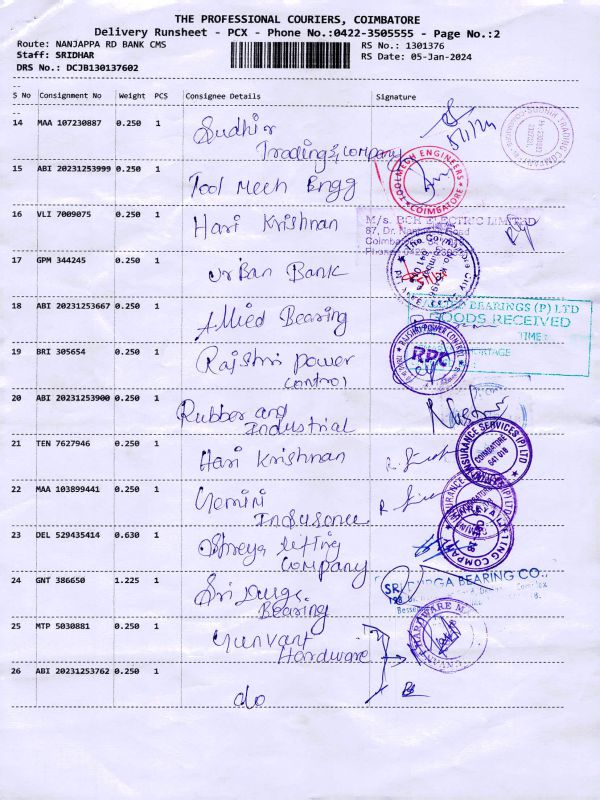 THE PROFESSIONAL COURIERS, COIMBATORE
Delivery Runsheet - PCX - Phone No.:0422-3505555 - Page No.:2
Route: NANJAPPA RD BANK CMS
RS No.: 1301376
Staff: SRIDHAR
RS Date: 05-Jan-2024
DRS No.: DCJB130137602
S No Consignment No Weight PCS Consignee Details Signature
14 MAA 107230887 0.250 1 Sudhir
Trading & Company
5/1/24
15 ABI 20231253999 0.250 1 Tool Mech Engg
TOOLMECH ENGINEERS
COIMBATORE
16 VLI 7009075 0.250 1 Hari Krishnan
M/s. BCH ELECTRIC LIMITED
87, Dr.
17 GPM 344245 0.250 1 Urban Bank
18 ABI 20231253667 0.250 1 Allied Bearing
BEARINGS (P) LTD
GOODS RECEIVED
TIME:
19 BRI 305654 0.250 1 Rajshri power
control
RAJSHRI POWER CONTROL
RPC
20 ABI 20231253900 0.250 1 Rubber and
Industrial
21 TEN 7627946 0.250 1 Hari Krishnan
INSURANCE SERVICES (P) LTD
COIMBATORE
641 018
22 MAA 103899441 0.250 1 Gemini
Insurance
23 DEL 529435414 0.630 1 Shreya lifting
Company
LIFTING COMPANY
24 GNT 386650 1.225 1 Sri Durga
Bearing
SRI DURGA BEARING CO.
25 MTP 5030881 0.250 1 Yunvant
Hardware
HARDWARE
26 ABI 20231253762 0.250 1 do